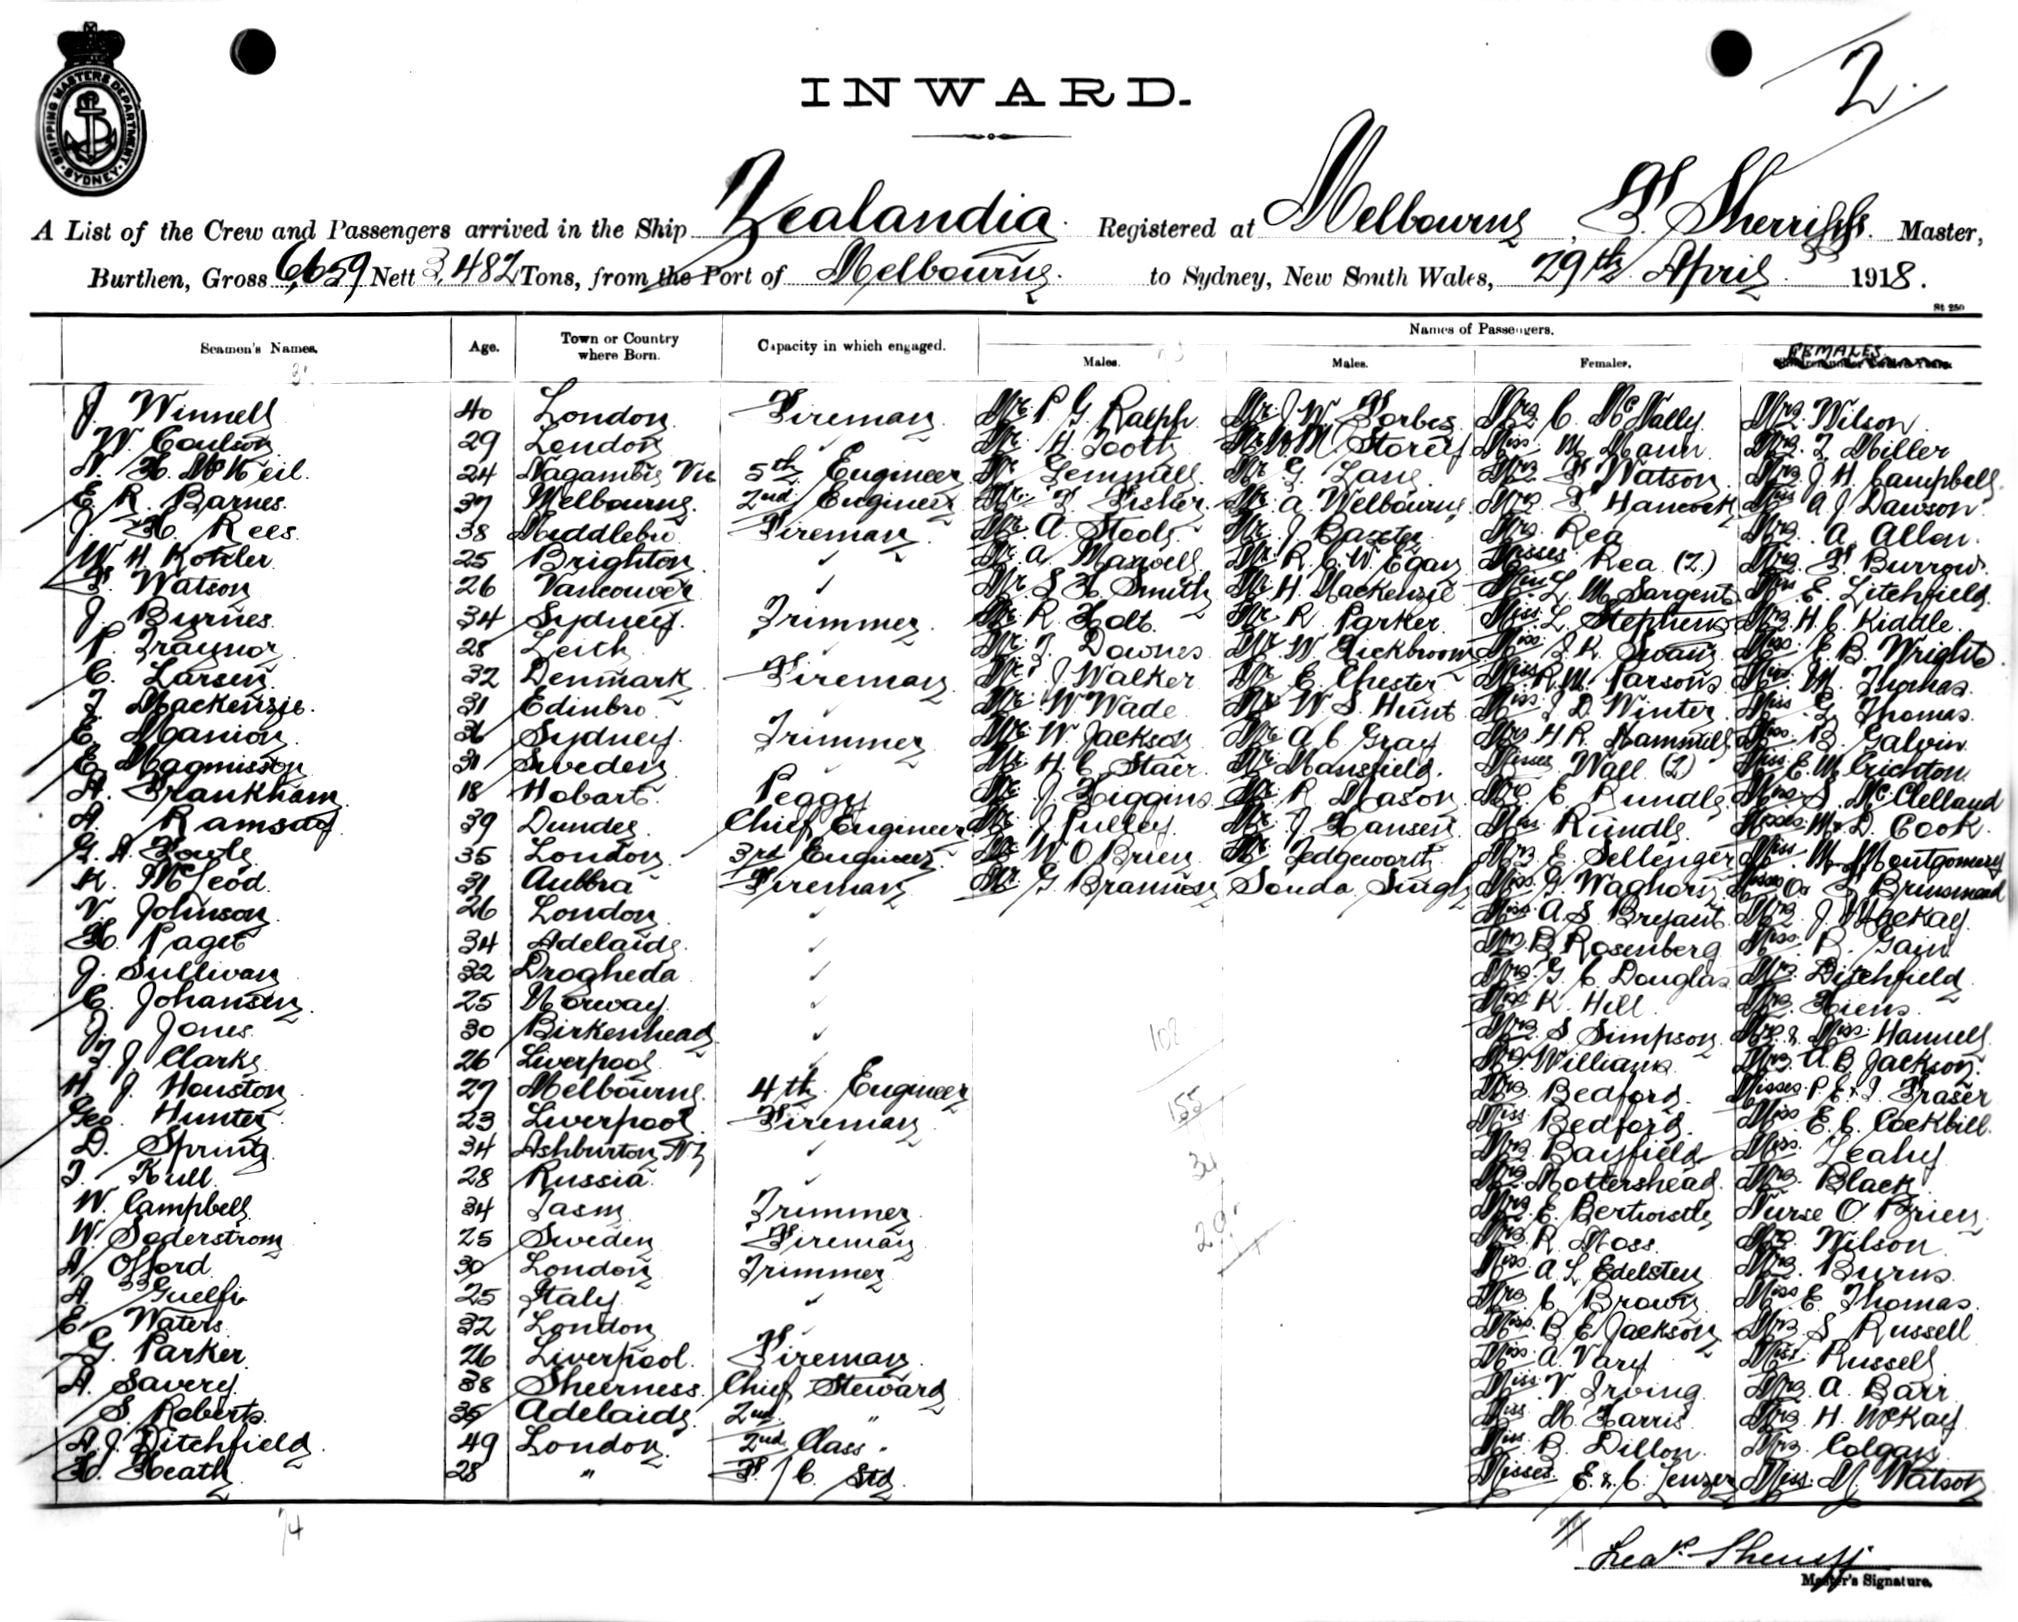 SHIPPING MASTERS DEPARTMENT SYDNEY
2.
INWARD.
A List of the Crew and Passengers arrived in the Ship Zealandia. Registered at Melbourne, Sherriff. Master,
Burthen, Gross 6,659 Nett 3,482 Tons, from the Port of Melbourne. to Sydney, New South Wales, 29th April. 1918.
St 250
Seamen's Names. Age. Town or Country where Born. Capacity in which engaged. Names of Passengers.
Males. Males. Females. FEMALES.
J. Winnell 40 London Fireman Mr. P G Ralph Mr. J W Forbes Mrs C McNally Mrs Wilson
W Coulson 29 London ✓ Mr. H. Tooth Storey Miss M Mann Mrs. T. Miller
N. H. McNeil. 24 Nagambie Vic 5th Engineer Mr Gemmell Mr G Lang Mrs F Watson Mrs J. H. Campbell
E R. Barnes. 37 Melbourne. 2nd Engineer Mr. F. Fisher. Mr. A. Melbourne Mrs F Hancock Miss A J Dawson
J. H. Rees 38 Middlebro Fireman Mr A. Steele Mr. J Baxter Mrs. Rea Mrs. A. Allen.
W. H. Kohler 25 Brighton ✓ Mr. A. Maxwell Mr. R. C. W. Egan Misses Rea (2.) Mrs F Burrow
F. Watson 26 Vancouver ✓ Mr. S H Smith Mr H. Mackenzie Miss L. M Sargent Miss E. Litchfield.
J. Byrnes 34 Sydney. Trimmer. Mr R. Holt. Mr. R. Parker Miss L. Stephens Mrs H. C. Kiddle.
P. Traynor 28 Leith ✓ Mr. T. Downes Mr W. Miss. J. R. Swan Miss. E. B. Wright
C. Larsen 32 Denmark Fireman Mr. J Walker Mr E. Chester Miss R. M. Parsons Miss. M. Thomas
J. Mackenzie. 31 Edinbro ✓ Mr. W Wade Mr W. S. Hunt Miss. J. D. Winter Miss G. Thomas
E. Manion 36 Sydney. Trimmer Mr. W. Jackson Mr. A C Gray Mrs H R. Hammill Miss. B. Galvin
E. Magnusson 31 Sweden ✓ Mr. H. C. Staer. Mr Mansfield. Misses Wall (2) Miss. E. M. Crichton
A. Frankham 18 Hobart. Peggy Mr. J. Higgins Mr. R Mason Mrs E. Rundle Miss S. McClelland
A. Ramsay 39 Dundee Chief Engineer Mr. J. Pulley Mr. J Hansen Miss Rundle. Misses M. & D. Cook.
G. A. Fowle 35 London. 3rd Engineer. Mr W O'Brien Mr Tedgeworth Mrs E. Sellenger Miss. M Montgomery
K. McLeod. 31 Aubbra Fireman Mr G. Sonda Singh Miss. G. Waghorn Misses Brinsmead
V. Johnson 26 London ✓ Miss A. S. Bryant Mrs J McKay.
H. Paget 34 Adelaide. ✓ Mrs. B Rosenberg Miss. B. Gain
J. Sullivan 32 Drogheda ✓ Mrs. G. C. Douglas Mrs. Ditchfield
C. Johansen 25 Norway. ✓ K. Hill Mrs. Hiens
J. Jones 30 Birkenhead ✓ Mrs S Simpson Mrs. & Miss. Hannell
T. J. Clarke 26 Liverpool ✓ Mrs. Williams Mrs. A. B. Jackson.
H. J. Houston 27 Melbourne. 4th Engineer Mrs Bedford. Misses P. E. & J. Fraser
Geo. Hunter 23 Liverpool. Fireman Miss Bedford. Miss E. C. Cockbill.
D. Spring. 34 Ashburton NZ ✓ Mrs Bayfield Miss. Leahy
T. Kull 28 Russia. ✓ Mrs Mottershead. Mrs. Black
W. Campbell 34 Tasm Trimmer Mrs. E. Bertwistle Nurse O'Brien
W. Soderstrom 25 Sweden Fireman Mrs R. Moss. Mrs. Wilson
A. Offord 30 London Trimmer Miss. A L Edelsten Mrs. Burns
A. Guelfi 25 Italy ✓ Mrs C Brown Miss E. Thomas.
E. Waters 32 London ✓ Miss. B. E. Jackson Mrs. S. Russell
G. Parker 26 Liverpool. Fireman Miss. A. Vary Miss. Russell
A. Savery. 38 Sheerness. Chief Steward Miss. V. Irving Mrs. A. Barr
S. Roberts. 35 Adelaide. 2nd " Miss M. Harris. Mrs. H. McKay
A. J. Ditchfield. 49 London. 2nd Class. Miss. B. Dillon. Mrs. Colgan
H. Heath 28 " F. C. Std Misses. E. & C. Lenzer Miss. M. Watson
102
155
34
29
74
Sherriff
Master's Signature.